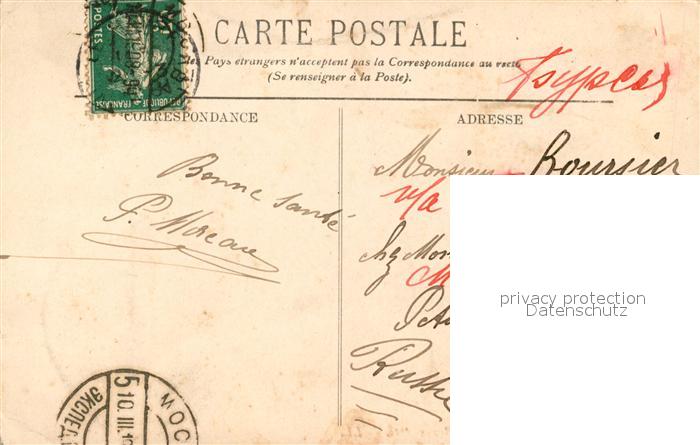 CARTE POSTALE
Pays étrangers n'acceptent pas la Correspondance au recto
(Se renseigner à la Poste).
POSTES
REPUBLIQUE FRANÇAISE
CORRESPONDANCE
ADRESSE
Bonne Santé
P. Moreau
Monsieur Boursier
Chez
privacy protection
Datenschutz
ЭКСПЕД
5 10 III
МОС